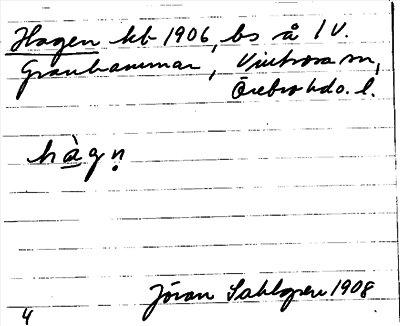 Hagen kb 1906, bs å 1 V.
Granhammar, Vintrosa sn,
Örebro hd o. l.
hàgṇ
Jöran Sahlgren 1908
4